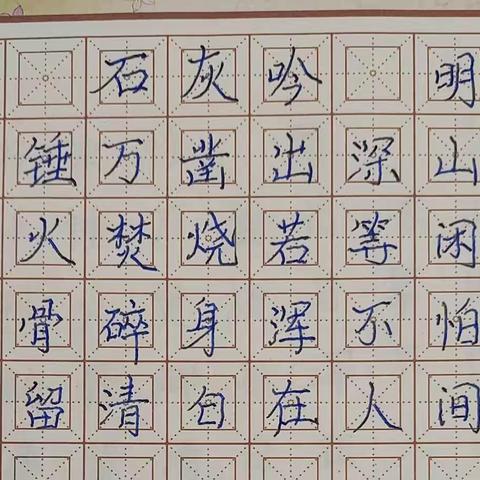 石灰吟 明
锤万凿出深山
火焚烧若等闲
骨碎身浑不怕
留清白在人间